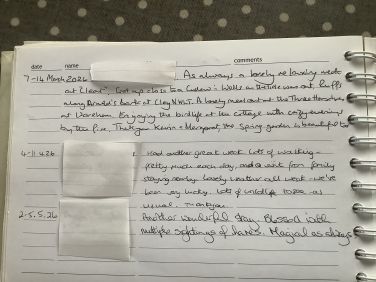 date name comments
7-14 March 2026 As always a lovely week
at Up close to a at Wells as the tide was out,
along bank at Cley NWT. A lovely meal out at the Three Horseshoes
at Enjoying the birdlife at the cottage with cozy evenings
by the fire. Thank you Kevin & Margaret, the Spring garden is beautiful too
4-11.4.26 Had another great week. Lots of walking -
pretty much each day, and a visit from family
staying nearby. Lovely weather all week - we've
been very lucky. Lots of wildlife to see as
usual. Thank you.
2-5.5.26 Another wonderful stay. Blessed with
multiple sightings of hares. Magical as always